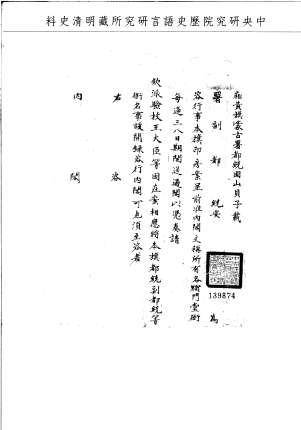 中央研究院歷史語言研究所藏明清史料
廂黃旗蒙古署都統固山貝子載
署副都統安
為
咨行事本旗印房案呈前准內閣文稱所有各衙門堂銜
每逢三八日期開送過閣以憑奏請
欽派驗放王大臣等因在案相應將本旗都統副都統等
銜名書寫開錄咨行內閣可也須至咨者
右咨
內閣
139874